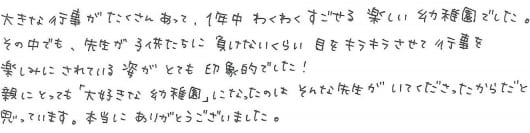 大きな行事がたくさんあって、1年中わくわくすごせる楽しい幼稚園でした。
その中でも、先生が子供たちに負けないくらい目をキラキラさせて行事を
楽しみにされている姿がとても印象的でした!
親にとっても「大好きな幼稚園」になったのはそんな先生がいてくださったからだと
思っています。本当にありがとうございました。